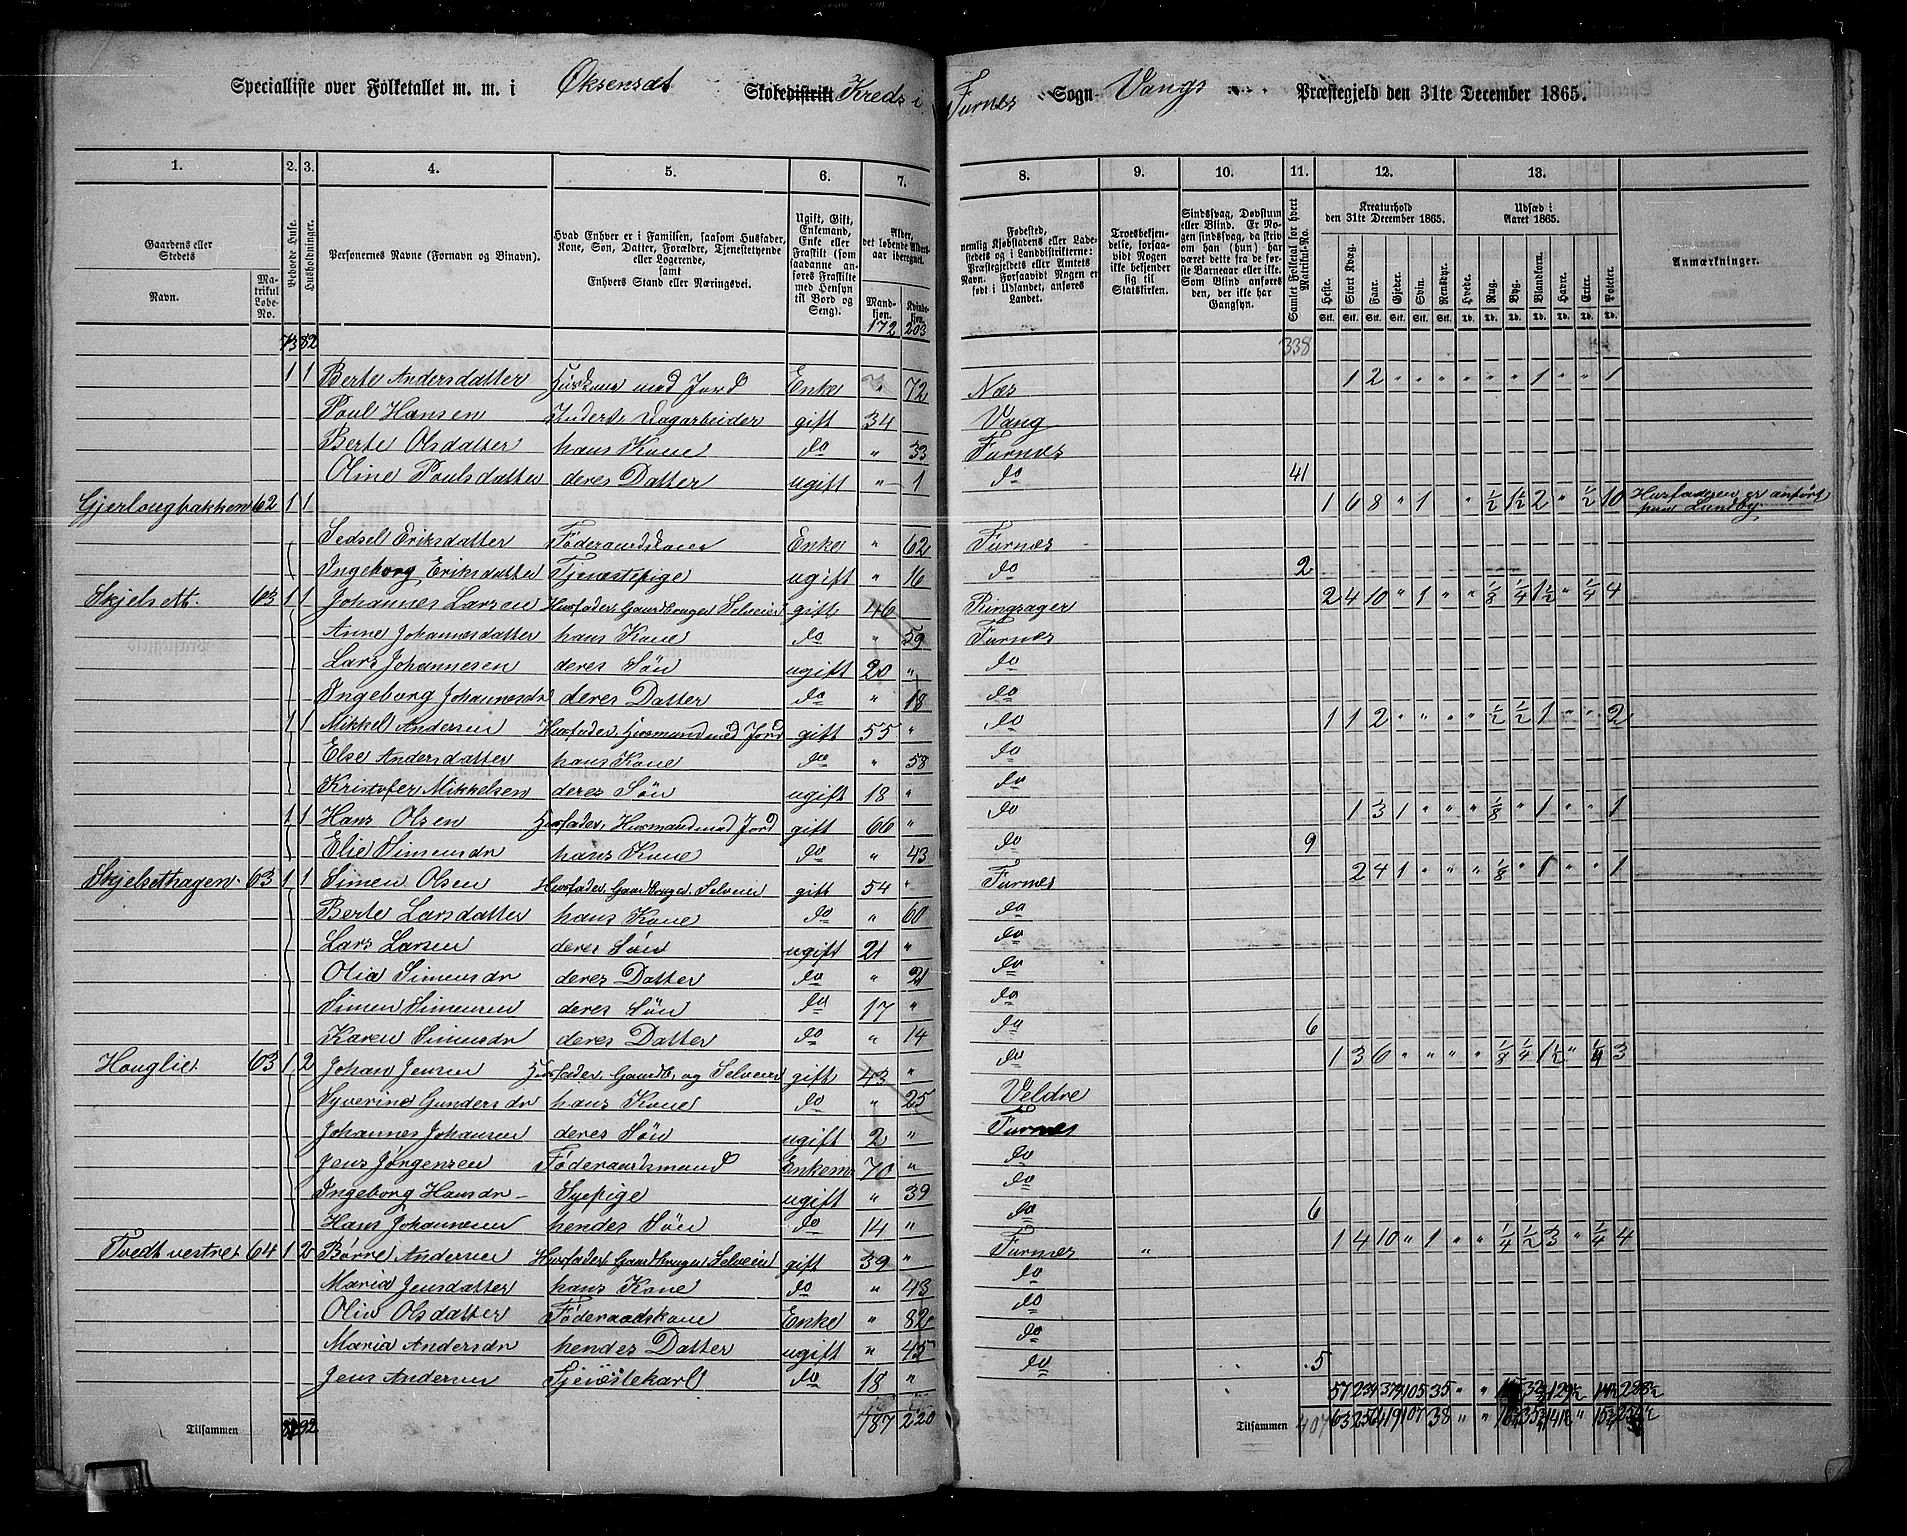 Specialliste over Folketallet m. m. i Øksensæt Skoledistrikt Kreds i Furnes Sogn Vangs Præstegjeld den 31te December 1865.
1. 2. 3. 4. 5. 6. 7. 8. 9. 10. 11. 12. 13.
Gaardens eller Stedets
Navn.
Matrikul Løbe-No.
Beboede Huse.
Husholdninger.
Personernes Navne (Fornavn og Binavn).
Hvad Enhver er i Familien, saasom Husfader, Kone, Søn, Datter, Forældre, Tjenestetyende eller Logerende, samt Enhvers Stand og Næringsvei.
Ugift, Gift, Enkemand, Enke eller Fraskilt (som saadanne anføres Fraskilte med Hensyn til Bord og Seng).
Alder, det løbende Alders-aar iberegnet.
Mandkjøn. Kvindekjøn.
Fødested, nemlig Kjøbstadens eller Ladestedets og i Landdistrikterne: Præstegjeldets eller Amtets Navn. Forsaavidt Nogen er født i Udlandet, anføres Landet.
Troesbekjendelse, forsaavidt Nogen ikke bekjender sig til Statskirken.
Sindssvag, Døvstum eller Blind. Er Nogen sindssvag, da skrives om han (hun) har været dette fra de første Barneaar eller ikke. Som Blind anføres den, der ikke har Gangsyn.
Samlet Folketal for hvert Matrikul-No.
Kreaturhold den 31te December 1865.
Heste. Stort Kvæg. Faar. Gjeder. Svin. Rensdyr.
Udsæd i Aaret 1865.
Hvede. Rug. Byg. Blandkorn. Havre. Erter. Poteter.
Anmærkninger.
73 82 172 203 338
1 1 Berte Andersdatter Huskone med Jord Enke " 72 Næs 1 2 " " " " " " 1 " " 1
Poul Hansen Inderst, Dagarbeider gift 34 Vang
Berte Olsdatter hans Kone do " 33 Furnes
Oline Poulsdatter deres Datter ugift " 1 do 41
Gjerlougbakken 62 1 1 1 6 8 " 1 " ½ 1½ 2 " ½ 10 Husfaderen er anført paa Lundby
Sedsel Eriksdatter Føderaadskone Enke " 62 Furnes
Ingeborg Eriksdatter Tjenestepige ugift " 16 do 2
Skjelset 63 1 1 Johannes Larsen Husfader Gaardbruger Selveier gift 46 Ringsager 2 4 10 " 1 " " ⅛ ¼ 1½ " ¼ 4
Anne Johannesdatter hans Kone do " 59 Furnes
Lars Johannesen deres Søn ugift 20 " do
Ingeborg Johannesdr deres Datter do " 18 do
1 1 Mikkel Andersen Husfader, Husmand med Jord gift 55 " do 1 1 2 " " " " ½ ½ 1 " " 2
Else Andersdatter hans Kone do " 58 do
Kristofer Mikkelsen deres Søn ugift 18 " do
1 1 Hans Olsen Husfader, Husmand med Jord gift 66 " do 1 3 1 " " " ⅛ " 1 " " 1
Elie Simensdr hans Kone do " 43 do 9
Skjelsethagen 63 1 1 Simen Olsen Husfader, Gaardbruger, Selveier gift 54 " Furnes 2 4 1 " " " ⅛ " 1 " " 1
Berte Larsdatter hans Kone do " 60 do
Lars Larsen deres Søn ugift 21 " do
Olia Simensdr deres Datter do " 21 do
Simen Simensen deres Søn do 17 " do
Karen Simensdr deres Datter do " 14 do 6
Houglie 63 1 2 Johan Jensen Husfader, Gaardb, og Selveier gift 43 " do 1 3 6 " " " " ⅛ ¼ 1½ " ¼ 3
Syverine Gundersdr hans Kone do " 25 Veldre
Johannes Johansen deres Søn ugift 2 " Furnes
Jens Jørgensen Føderaadsmand Enkem 70 " do
Ingeborg Hansdr Sypige ugift " 39 do
Hans Johannesen hendes Søn do 14 " do 6
Tvedt vestre 64 1 2 Børre Andersen Husfader Gaardbruger Selveier gift 39 " Furnes " 1 4 10 " 1 " " ¼ ½ 3 " ¼ 4
Maria Jensdatter hans Kone do " 43 do
Olia Olsdatter Føderaadskone Enke " 82 do
Maria Andersdr hendes Datter ugift " 45 do
Jens Andersen Tjenestekarl do 18 " do 5
Tilsammen 92 187 220 Tilsammen 407 63 256 419 107 38 " "